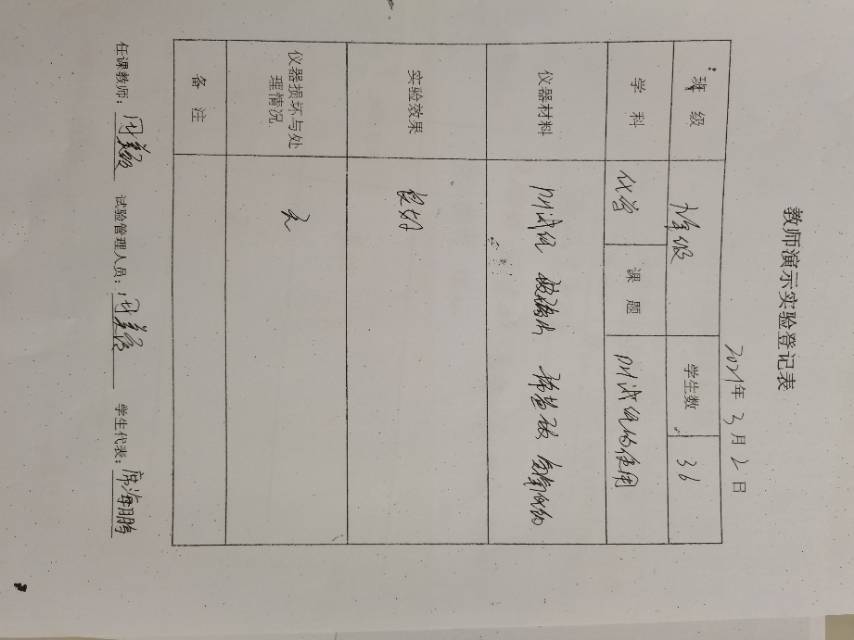 教师演示实验登记表
2021年 3月 2日
班 级 九年级 学生数 36
学 科 化学 课 题 PH试纸的使用
仪器材料 PH试纸 玻璃片 稀盐酸 氢氧化钠
实验效果 良好
仪器损坏与处
理情况 无
备 注
任课教师: 试验管理人员: 学生代表: 席海鹏